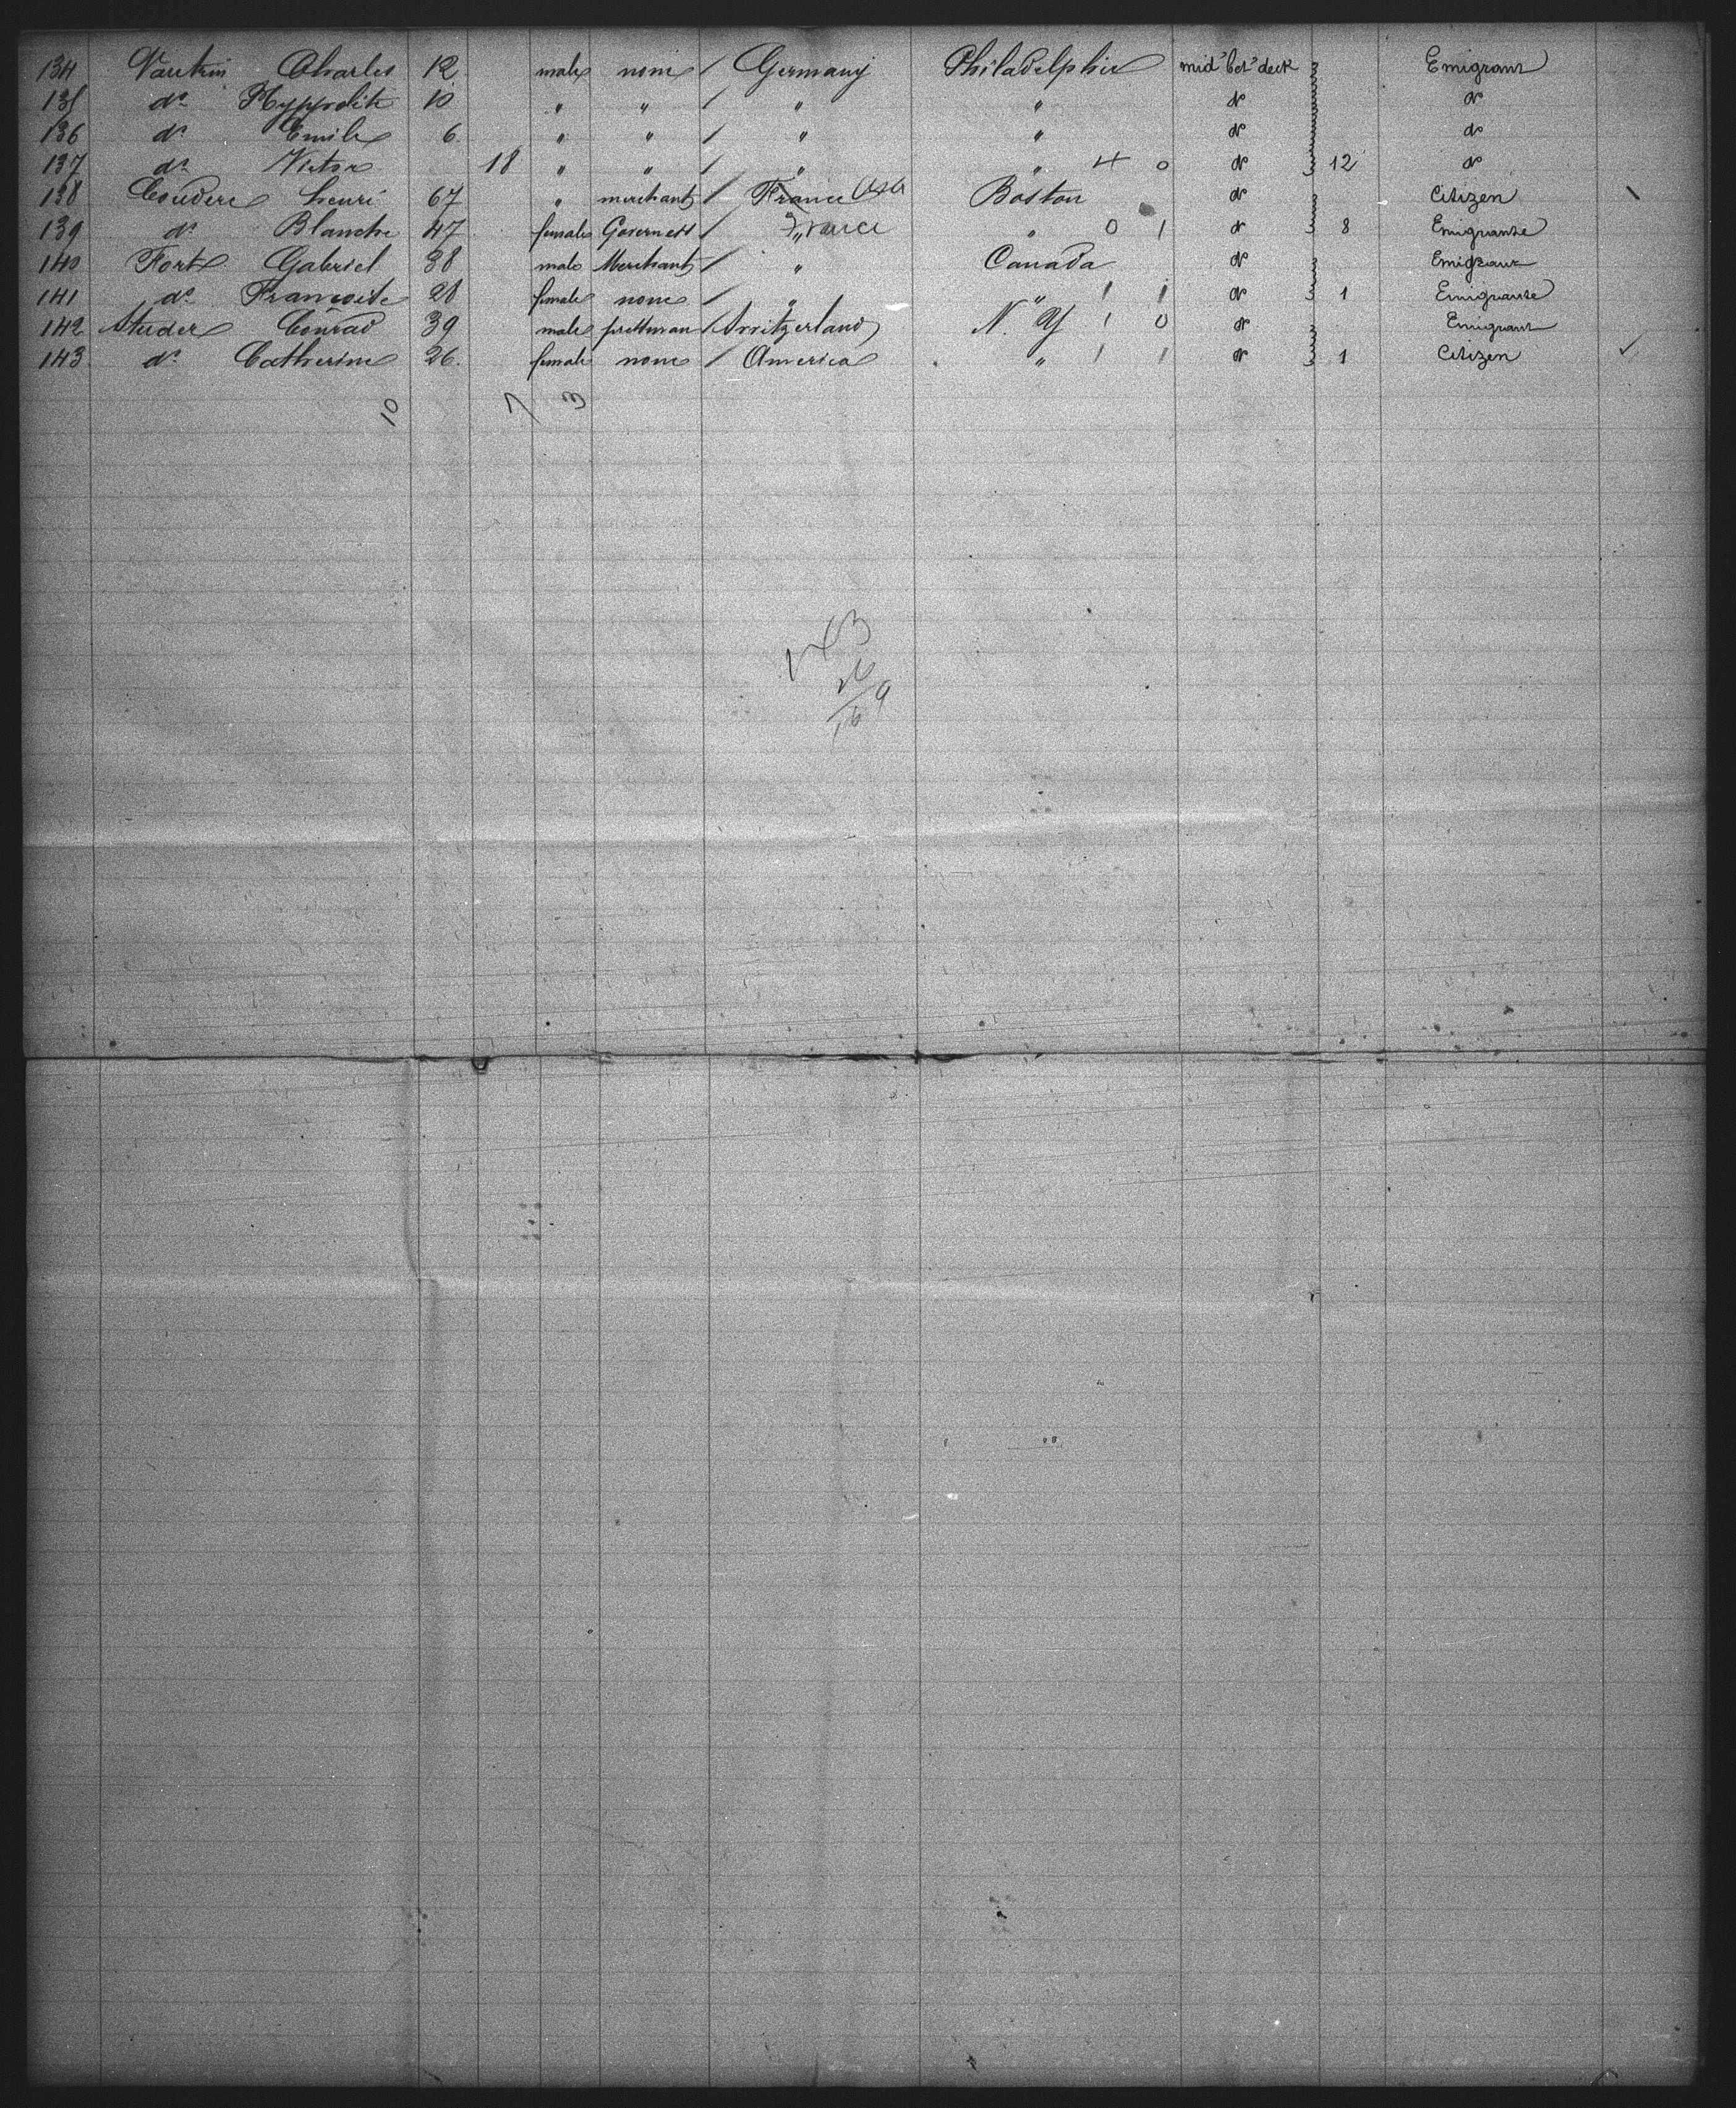 134 Vautrin Charles 12 male none / Germany Philadelphie mid bet deck Emigrant
135 do Hyppolite 10 " " / " " do do
136 do Emile 6 " " / " " do do
137 do Victor 18 " " / " " 4 0 do 12 do
138 Couderc Henri 67 " merchant / France USA Boston do Citizen
139 do Blanche 47 female Governess / " France " 0 1 do 8 Emigrante
140 Fort Gabriel 38 male Merchant / " Canada do Emigrant
141 do Françoise 28 female none / " " 1 1 do 1 Emigrante
142 Studer Conrad 39 male / Switzerland N. Y 1 0 do Emigrant
143 do Catherine 26 female none / America " 1 1 do 1 Citizen
10 7 3
143
26
169